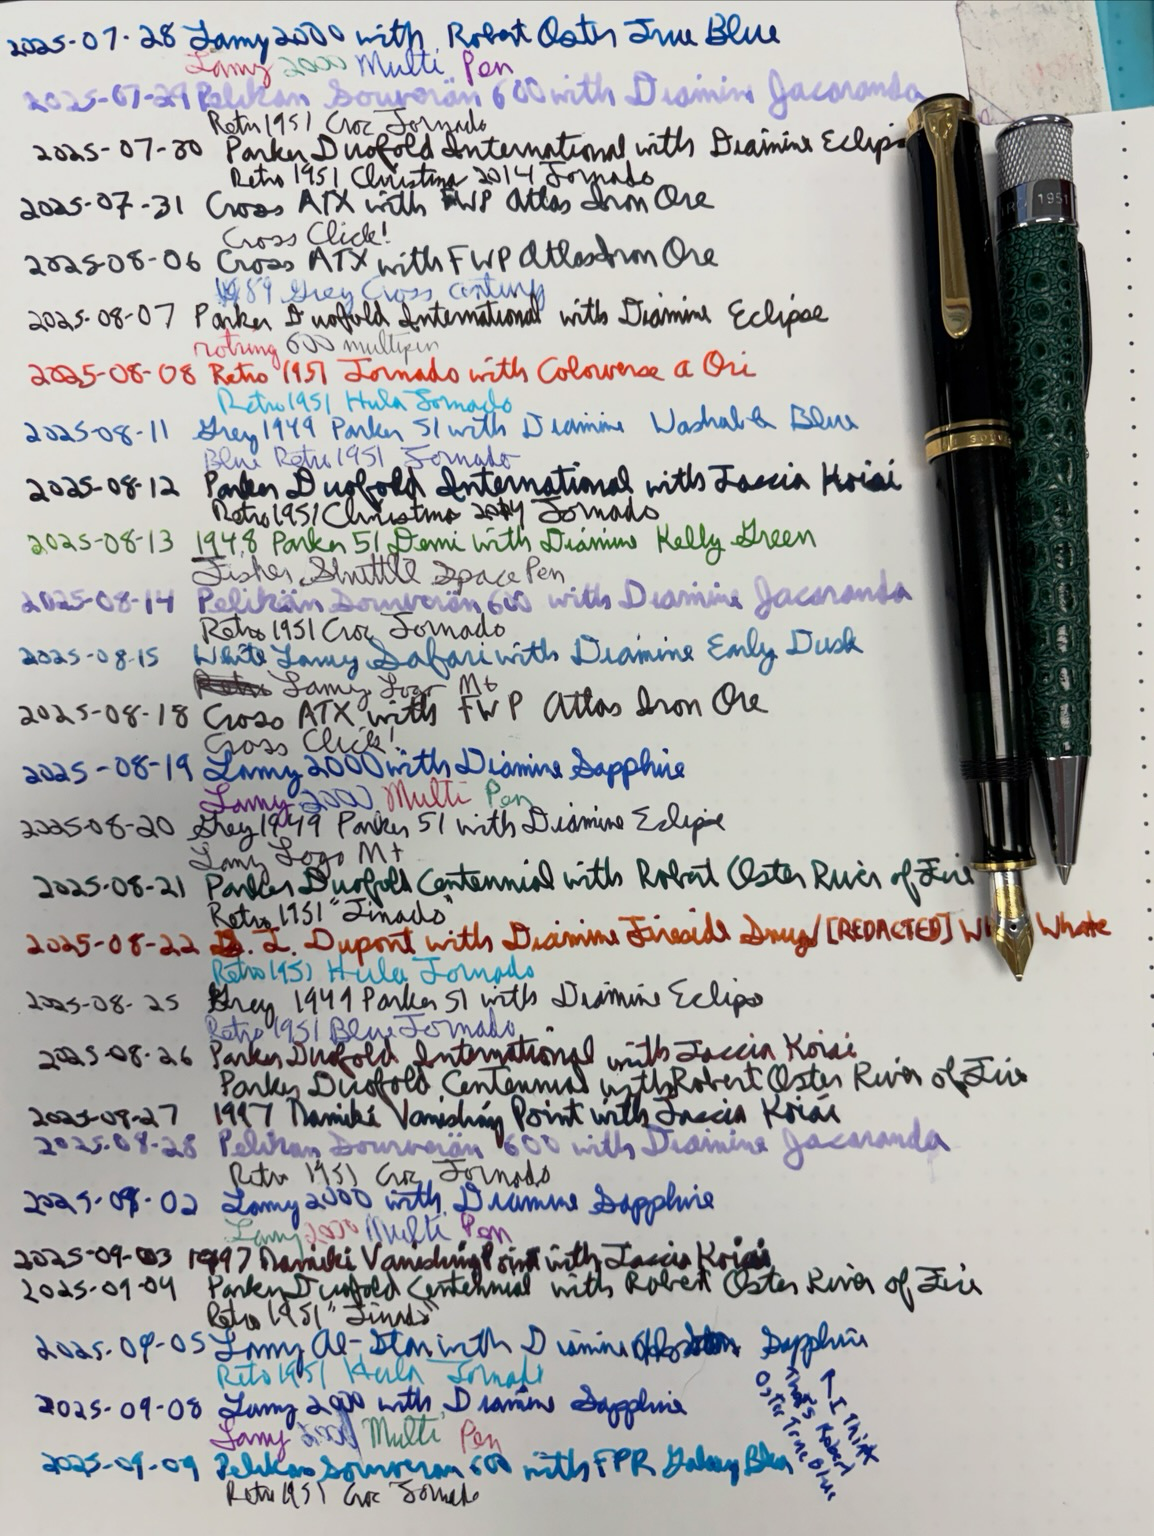 2025-07-28 Lamy 2000 with Robert Oster True Blue
Lamy 2000 Multi Pen
2025-07-29 Pelikan Souverän 600 with Diamine Jacaranda
Retro 1951 Croc Tornado
2025-07-30 Parker Duofold International with Diamine Eclipse
Retro 1951 Christmas 2014 Tornado
2025-07-31 Cross ATX with FWP Atlas Iron Ore
Cross Click!
2025-08-06 Cross ATX with FWP Atlas Iron Ore
1989 Grey Cross Century
2025-08-07 Parker Duofold International with Diamine Eclipse
rotring 600 multipen
2025-08-08 Retro 1951 Tornado with Colorverse α Ori
Retro 1951 Hula Tornado
2025-08-11 Grey 1949 Parker 51 with Diamine Washable Blue
Blue Retro 1951 Tornado
2025-08-12 Parker Duofold International with Taccia Koiai
Retro 1951 Christmas 2014 Tornado
2025-08-13 1948 Parker 51 Demi with Diamine Kelly Green
Fisher Shuttle Space Pen
2025-08-14 Pelikan Souverän 600 with Diamine Jacaranda
Retro 1951 Croc Tornado
2025-08-15 White Lamy Safari with Diamine Early Dusk
Lamy Logo M+
2025-08-18 Cross ATX with FWP Atlas Iron Ore
Cross Click!
2025-08-19 Lamy 2000 with Diamine Sapphire
Lamy 2000 Multi Pen
2025-08-20 Grey 1949 Parker 51 with Diamine Eclipse
Lamy Logo M+
2025-08-21 Parker Duofold Centennial with Robert Oster River of Fire
Retro 1951 "Tinado"
2025-08-22 S. T. Dupont with Diamine Fireside Snug/[REDACTED] Whale
Retro 1951 Hula Tornado
2025-08-25 Grey 1949 Parker 51 with Diamine Eclipse
Retro 1951 Blue Tornado
2025-08-26 Parker Duofold International with Taccia Koiai
Parker Duofold Centennial with Robert Oster River of Fire
2025-08-27 1997 Namiki Vanishing Point with Taccia Koiai
2025-08-28 Pelikan Souverän 600 with Diamine Jacaranda
Retro 1951 Croc Tornado
2025-09-02 Lamy 2000 with Diamine Sapphire
Lamy 2000 Multi Pen
2025-09-03 1997 Namiki Vanishing Point with Taccia Koiai
2025-09-04 Parker Duofold Centennial with Robert Oster River of Fire
Retro 1951 "Tinado"
2025-09-05 Lamy Al-Star with Diamine Sapphire
Retro 1951 Hula Tornado
↑ I think
that's Robert
Oster True Blue
2025-09-08 Lamy 2000 with Diamine Sapphire
Lamy 2000 Multi Pen
2025-09-09 Pelikan Souverän 600 with FPR Galaxy Blue
Retro 1951 Croc Tornado
1951